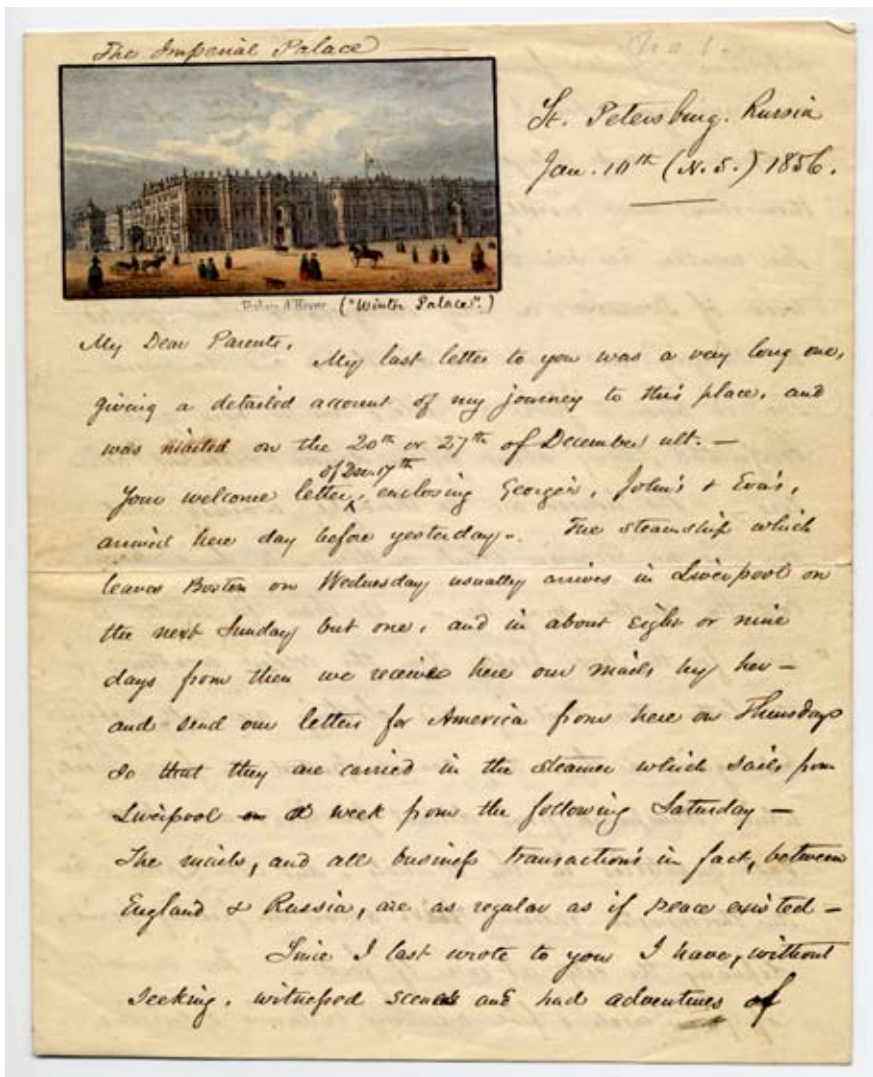 The Imperial Palace
St. Petersburg. Russia
Jan. 10th (N.S.) 1856.
Palais d'Hiver ("Winter Palace".)
My Dear Parents,
My last letter to you was a very long one,
giving a detailed account of my journey to this place, and
was mailed on the 20th or 27th of December ult. —
of Dec. 17th
Your welcome letter, enclosing Georgie's, John's & Eva's,
arrived here day before yesterday. The steamship which
leaves Boston on Wednesday usually arrives in Liverpool on
the next Sunday but one, and in about eight or nine
days from then we receive here our mails by her —
and send our letters for America from here on Thursdays
so that they are carried in the steamer which sails from
Liverpool a week from the following Saturday —
The mails, and all business transactions in fact, between
England & Russia, are as regular as if peace existed —
Since I last wrote to you I have, without
seeking, witnessed scenes and had adventures of